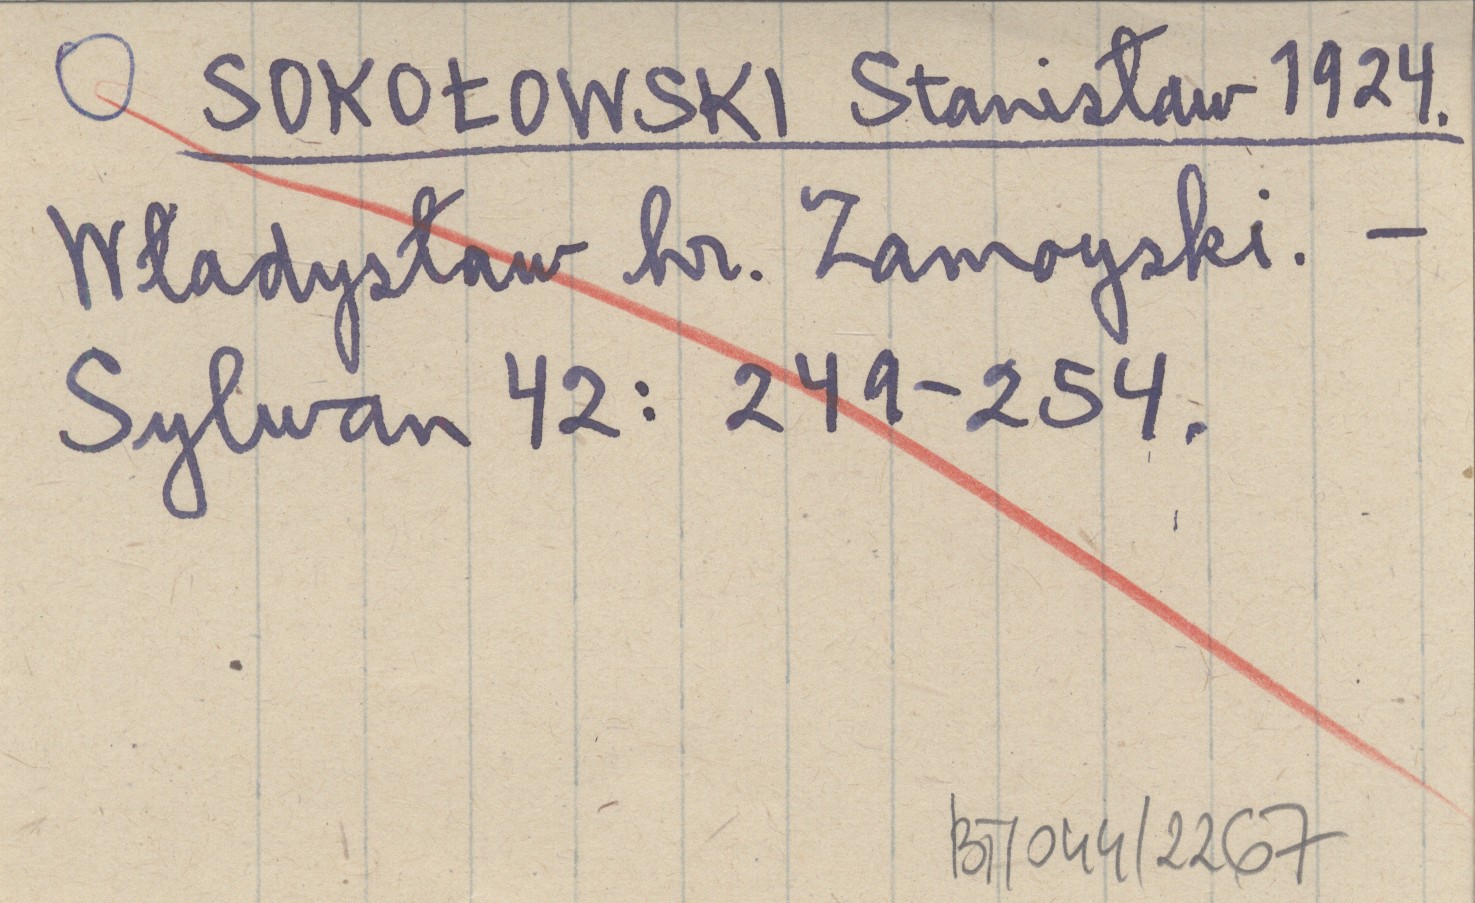 SOKOŁOWSKI Stanisław 1924.
Władysław hr. Zamoyski. –
Sylwan 42: 249-254.
BT/044/2267